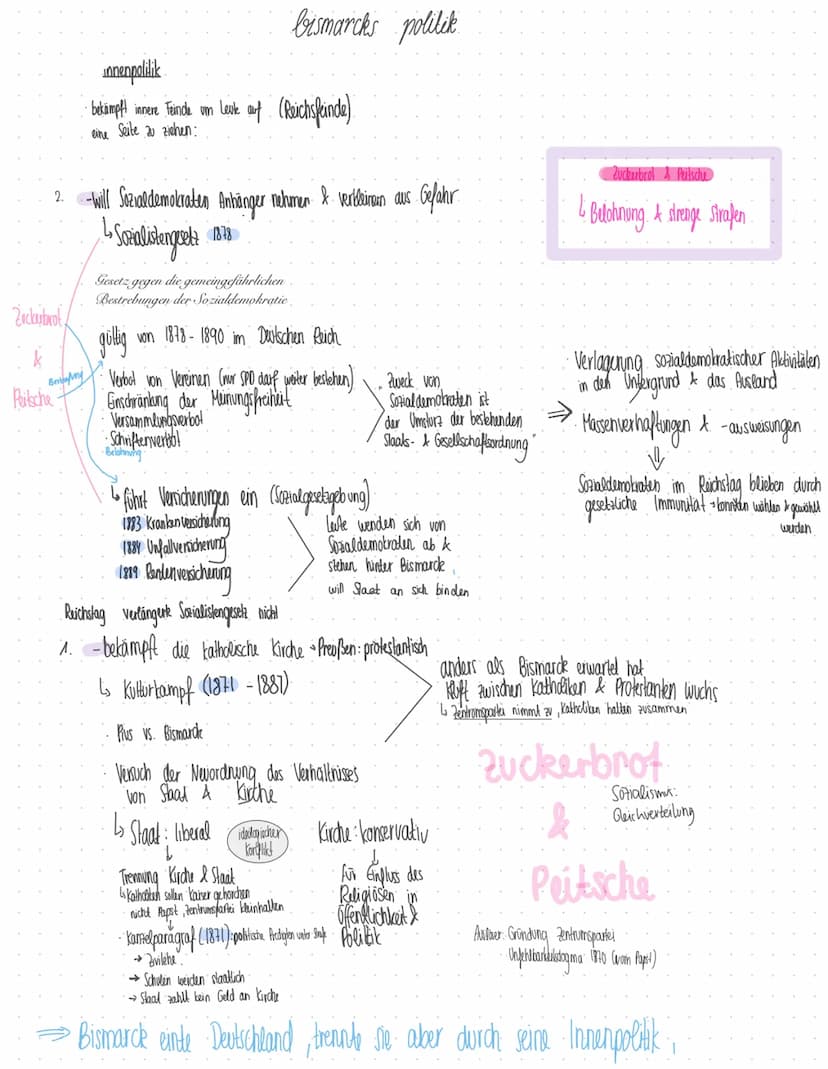 bismarcks politik
innenpolitik
· bekämpft innere Feinde um Leute auf (Reichsfeinde)
eine Seite zu ziehen:
Zuckerbrot & Peitsche
↳ Belohnung & strenge Strafen
2. -will Sozialdemokraten Anhänger nehmen & verkleinern aus Gefahr
↳ Sozialistengesetz 1878
Gesetz gegen die gemeingefährlichen
Bestrebungen der Sozialdemokratie
Zuckerbrot
&
Peitsche
gültig von 1878 - 1890 im Deutschen Reich
· Verbot von Vereinen (nur SPD darf weiter bestehen)
Einschränkung der Meinungsfreiheit
· Versammlungsverbot
· Schriftenverbot
Belohnung
„Zweck von
Sozialdemokraten ist
der Umsturz der bestehenden
Staats- & Gesellschaftsordnung"
⇒
· Verlagerung sozialdemokratischer Aktivitäten
in den Untergrund & das Ausland
· Massenverhaftungen & -ausweisungen
⇓
Sozialdemokraten im Reichstag blieben durch
gesetzliche Immunität → konnten wählen & gewählt
werden
↳ führt Versicherungen ein (Sozialgesetzgebung)
1883 Krankenversicherung
1884 Unfallversicherung
1889 Rentenversicherung
Leute wenden sich von
Sozialdemokraten ab &
stehen hinter Bismarck,
will Staat an sich binden
Reichstag verlängerte Sozialistengesetz nicht
1. -bekämpft die katholische Kirche → Preußen: protestantisch
↳ Kulturkampf (1871 - 1887)
anders als Bismarck erwartet hat
Kluft zwischen Katholiken & Protestanten wuchs
↳ Zentrumspartei nimmt zu, Katholiken halten zusammen
· Pius vs. Bismarck
· Versuch der Neuordnung des Verhältnisses
von Staat & Kirche
↳ Staat: liberal
ideologischer
Konflikt
Kirche: konservativ
Trennung Kirche & Staat
↳ Katholiken sollen Kaiser gehorchen
nicht Papst, Zentrumspartei kleinhalten
· Kanzelparagraf (1871): politische Predigten unter Strafe
→ Zivilehe
→ Schulen werden staatlich
→ Staat zahlt kein Geld an Kirche
für Einfluss des
Religiösen in
Öffentlichkeit &
Politik
Zuckerbrot
&
Peitsche
Sozialismus:
Gleichverteilung
Gründung Zentrumspartei
Unfehlbarkeitsdogma 1870 (vom Papst)
⇒ Bismarck einte Deutschland, trennte sie aber durch seine Innenpolitik.